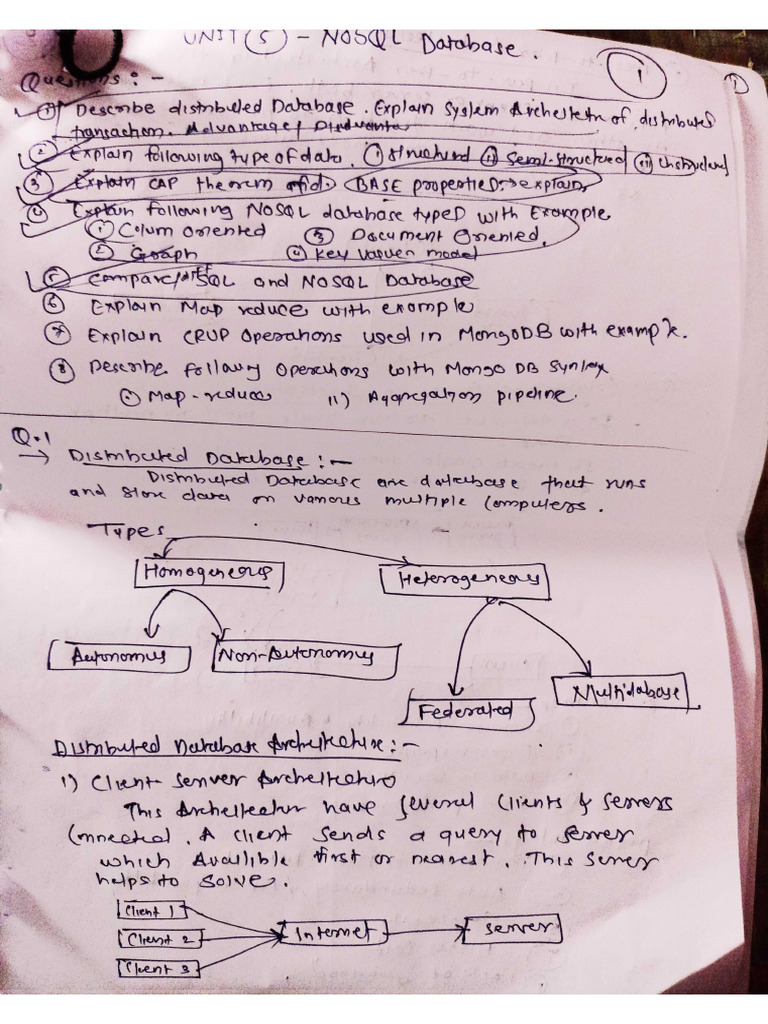 UNIT (5) - NOSQL Database.
1
1
Questions :-
① Describe distributed Database. Explain System Architectn of distributed
transaction. Advantage / Disadvanta
② Explain following type of data. ① structured ⑪ Semi-structured ⑪⑪ Unstructured
③ Explain CAP theorem BASE properties -> explain
④ Explain following NOSQL database types with Example
① Colum oriented ③ Document Oriented.
② Graph ④ Key model
⑤ Compare SQL and NOSQL Database
⑥ Explain Map reduce with example
⑦ Explain CRUP Operations used in MongoDB with example.
⑧ Describe following operations with Mongo DB Syntax
① Map-reduce 11) Aggregation pipeline.
Q.1
-> Distributed Database :-
Distributed Database are database that runs
and store data on various multiple Computers.
Types
Homogeneous Heterogeneous
Autonomus Non-Autonomus
Federated Multidatabase
Distributed Database Architecture :-
1) Client Server Architecture
This Architectur have several Clients & Servers
Connected. A client sends a query to server
which Availible first or nearest. This server
helps to solve.
Client 1
Client 2 Internet Server
Client 3